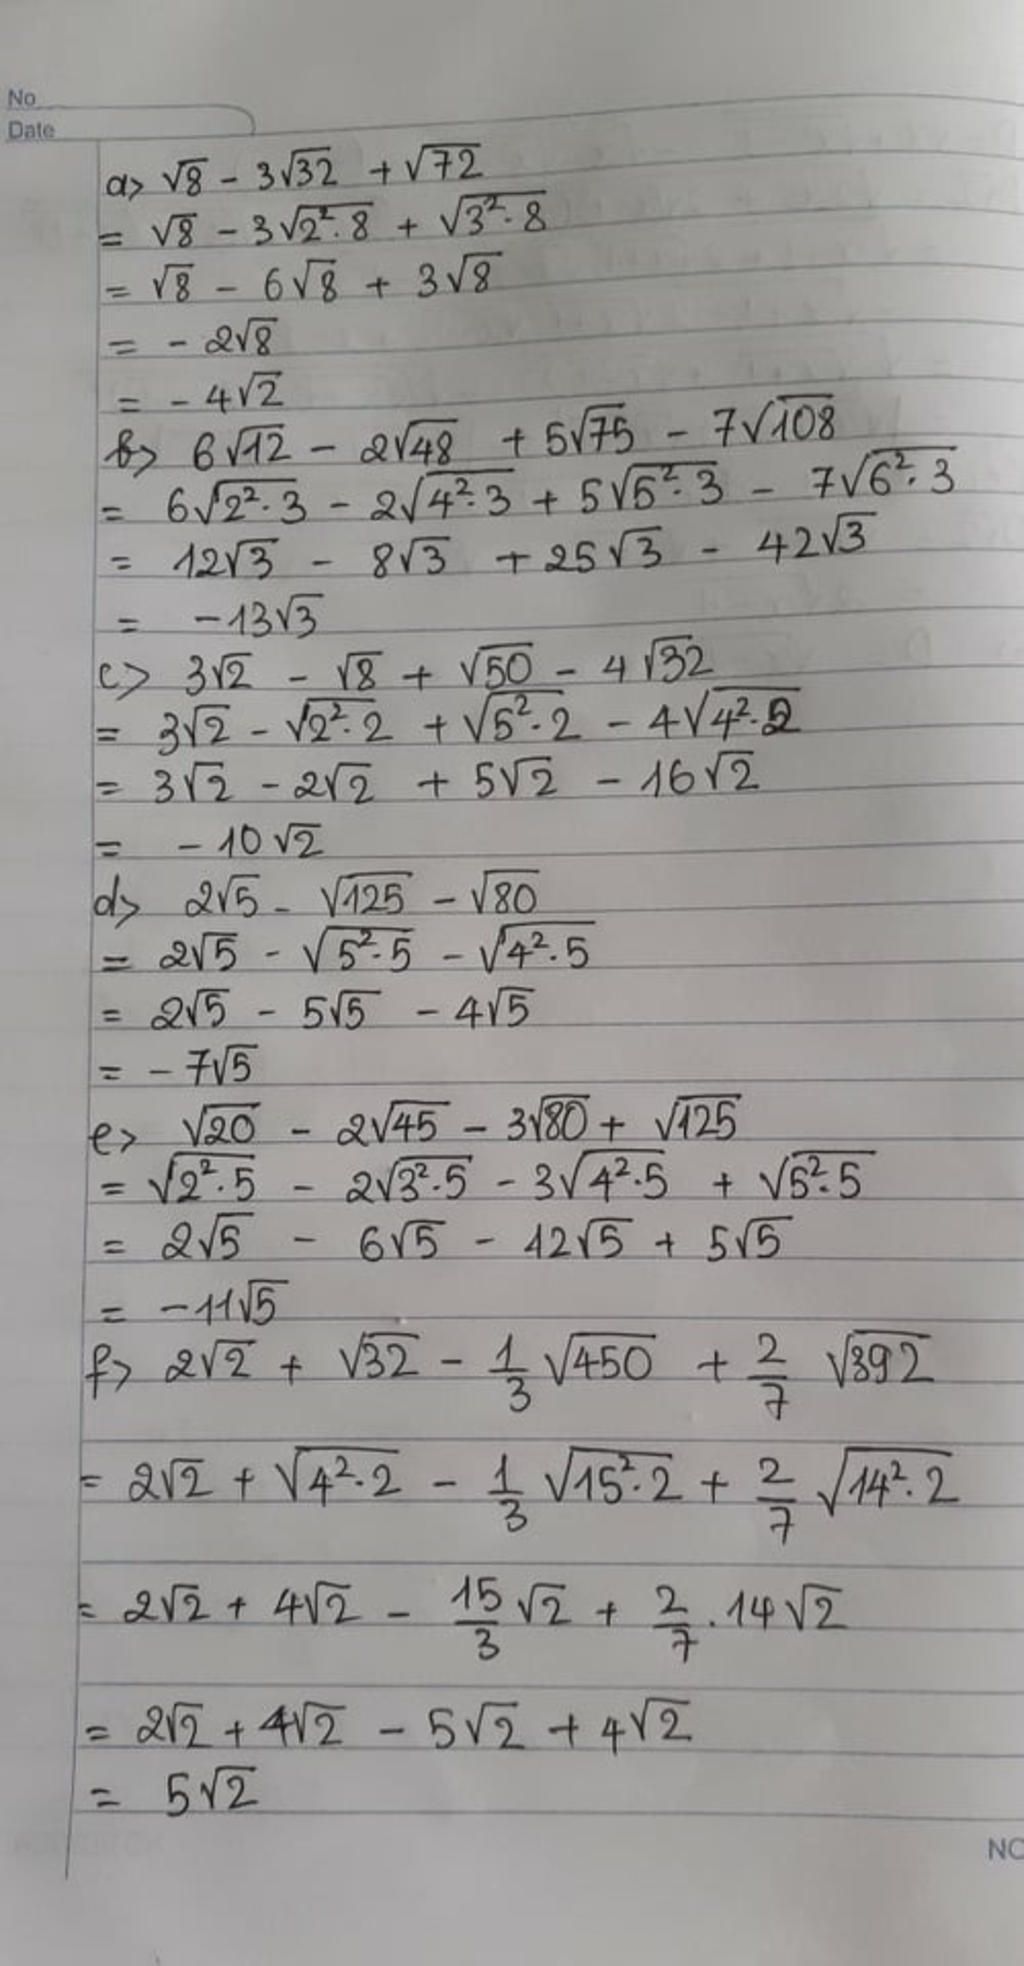 No
Date
a> √8 - 3√32 + √72
= √8 - 3√2².8 + √3².8
= √8 - 6√8 + 3√8
= - 2√8
= - 4√2
b> 6√12 - 2√48 + 5√75 - 7√108
= 6√2².3 - 2√4².3 + 5√5².3 - 7√6².3
= 12√3 - 8√3 + 25√3 - 42√3
= -13√3
c> 3√2 - √8 + √50 - 4√32
= 3√2 - √2².2 + √5².2 - 4√4².2
= 3√2 - 2√2 + 5√2 - 16√2
= - 10√2
d> 2√5 - √125 - √80
= 2√5 - √5².5 - √4².5
= 2√5 - 5√5 - 4√5
= - 7√5
e> √20 - 2√45 - 3√80 + √125
= √2².5 - 2√3².5 - 3√4².5 + √5².5
= 2√5 - 6√5 - 12√5 + 5√5
= -11√5
f> 2√2 + √32 - 1/3 √450 + 2/7 √392
= 2√2 + √4².2 - 1/3 √15².2 + 2/7 √14².2
= 2√2 + 4√2 - 15/3 √2 + 2/7 . 14√2
= 2√2 + 4√2 - 5√2 + 4√2
= 5√2